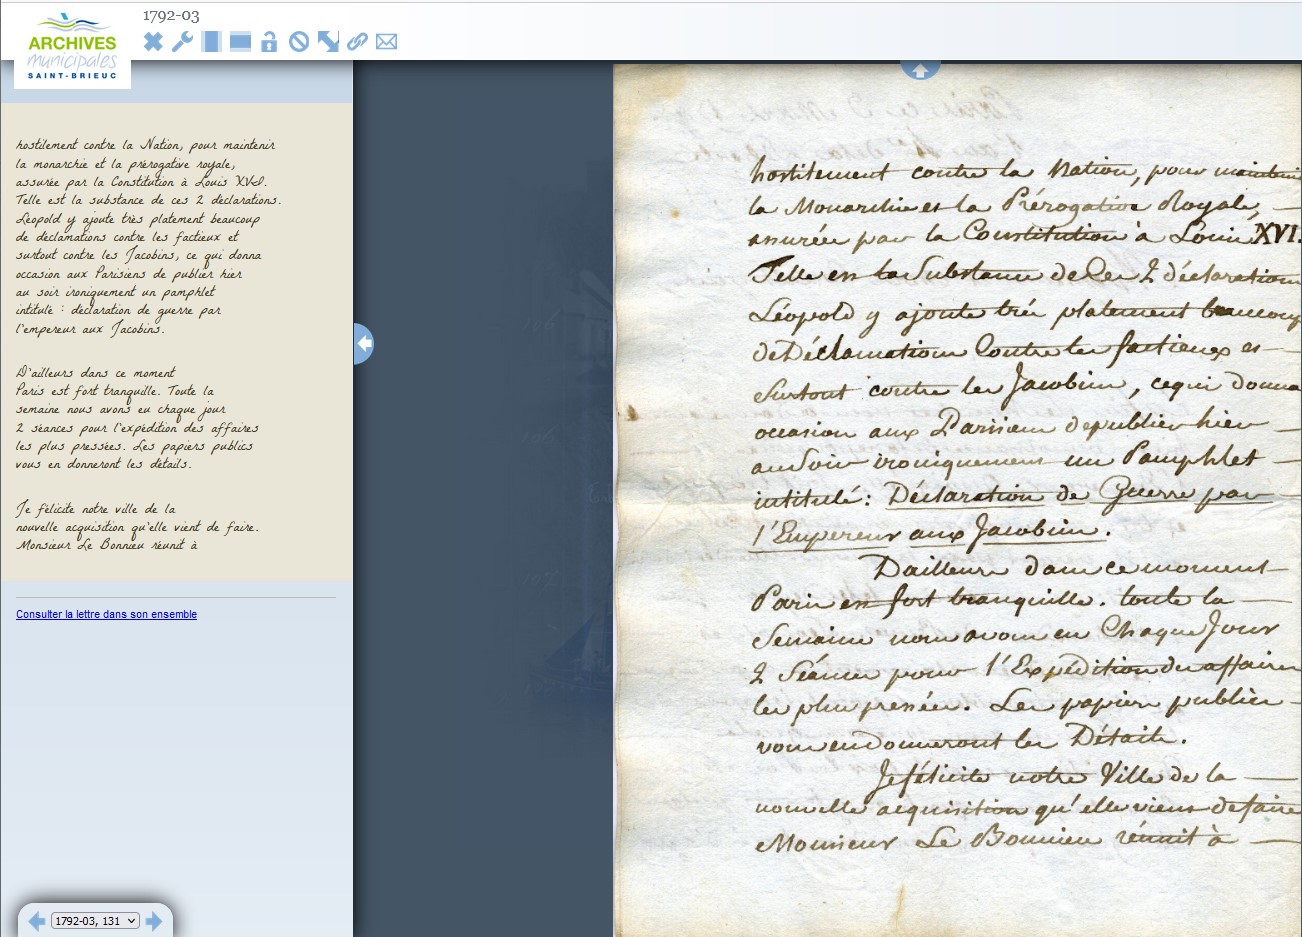 1792-03
ARCHIVES
municipales
SAINT-BRIEUC
hostilement contre la Nation, pour maintenir
la monarchie et la prérogative royale,
assurée par la Constitution à Louis XVI.
Telle est la substance de ces 2 déclarations.
Léopold y ajoute très platement beaucoup
de déclamations contre les factieux et
surtout contre les Jacobins, ce qui donna
occasion aux Parisiens de publier hier
au soir ironiquement un pamphlet
intitulé : déclaration de guerre par
l'empereur aux Jacobins.
D'ailleurs dans ce moment
Paris est fort tranquille. Toute la
semaine nous avons eu chaque jour
2 séances pour l'expédition des affaires
les plus pressées. Les papiers publics
vous en donneront les détails.
Je félicite notre ville de la
nouvelle acquisition qu'elle vient de faire.
Monsieur Le Bonnieu réunit à
Consulter la lettre dans son ensemble
1792-03, 131
hostilement contre la Nation, pour maintenir
la Monarchie et la Prérogative Royale,
assurée par la Constitution à Louis XVI.
Telle est la Substance de Ces 2 déclarations
Léopold y ajoute très platement beaucoup
de Déclamations Contre les factieux et
Surtout contre les Jacobins, ce qui donna
occasion aux Parisiens de publier hier
au Soir ironiquement un Pamphlet
intitulé: Déclaration de Guerre par
l'Empereur aux Jacobins.
Dailleurs dans ce moment
Paris est fort tranquille. toute la
Semaine nous avons eu Chaque Jour
2 Séances pour l'Expédition des affaires
les plus pressées. Les papiers publics
vous en donneront les Détails.
Je félicite notre Ville de la
nouvelle acquisition qu'elle vient de faire
Monsieur Le Bonnieu réunit à